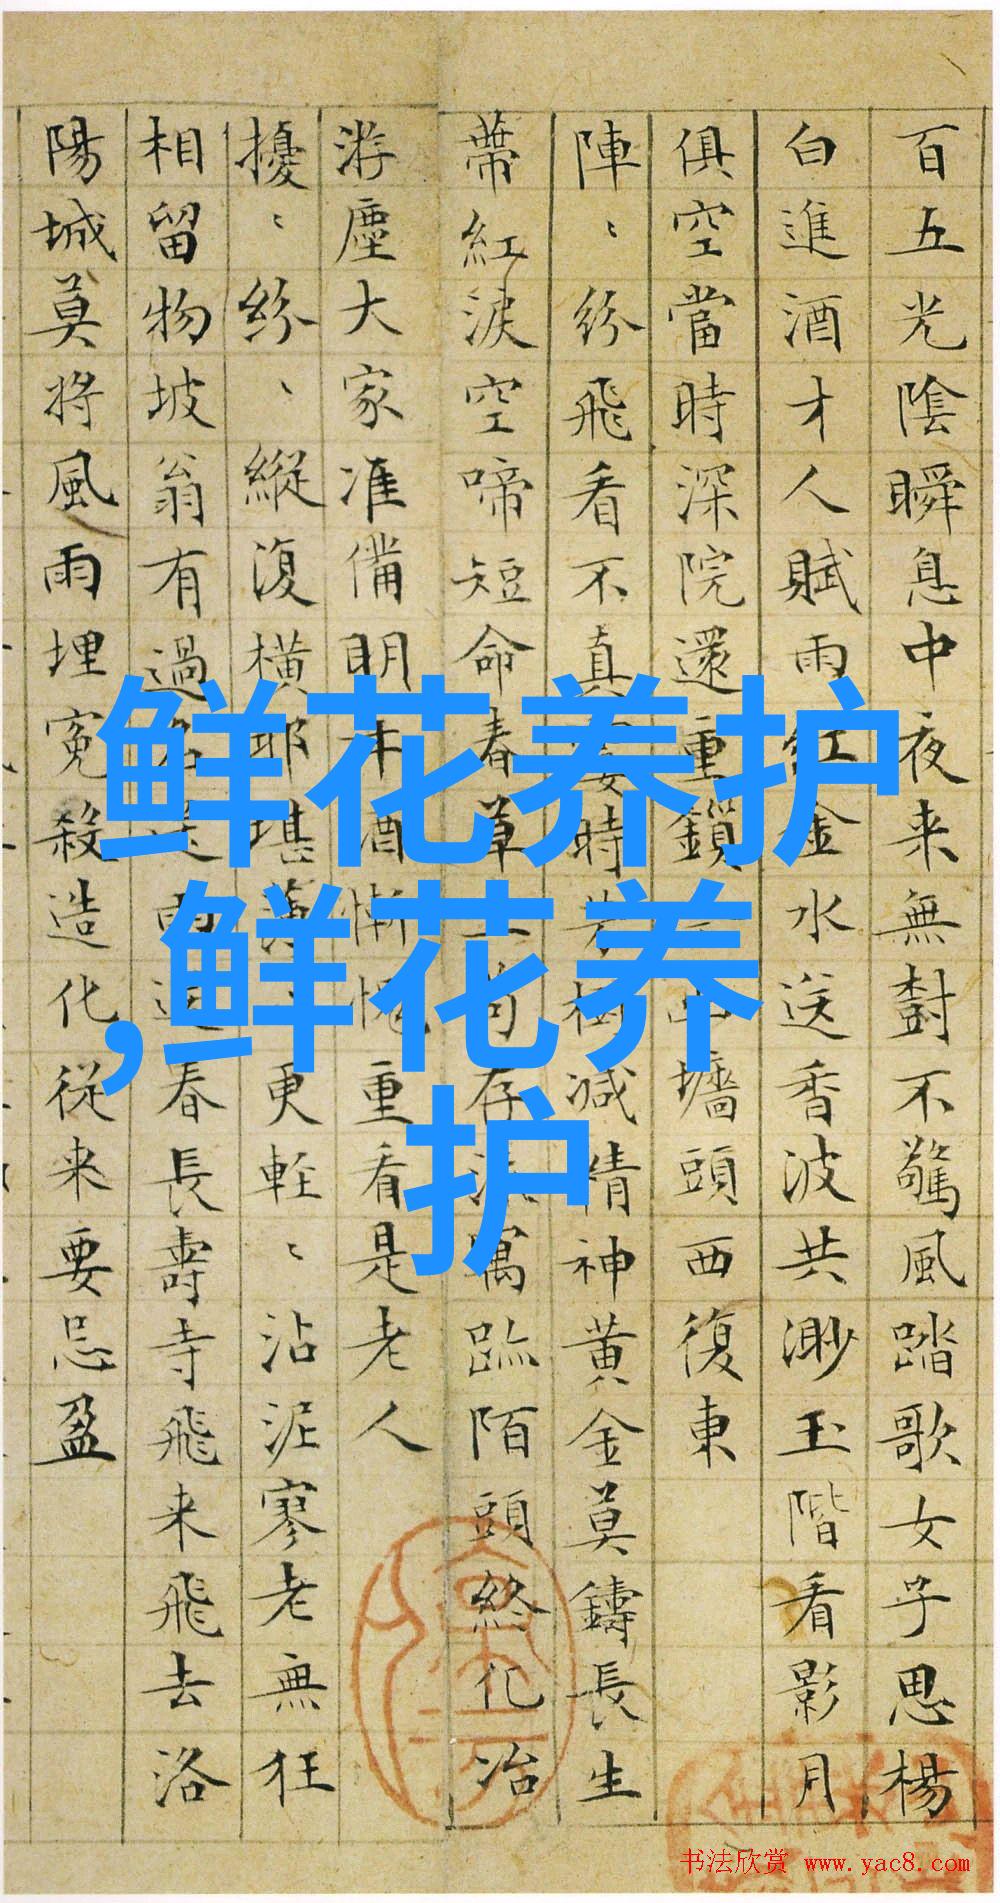 百五光陰瞬息中夜来無對不驚風踏歌女子思楊
白進酒才人賦雨紅金水送香波共渺玉階看影月
俱空當時深院還重鎖墻頭西復東
陣〻紛飛看不真時減情神黄金莫鑄長生
蒂紅淚空啼短命春草存陌頭終化冶
游塵大家准備明酒慚愧重看是老人
擾〻紛〻縱復横堪更輕〻沾泥寥老無狂
相留物坡翁有過春長壽寺飛来飛去洛
陽城莫将風雨埋冤殺造化從来要忌盈
鲜花养护
,鲜花养
护
书法欣赏 www.yac8.com